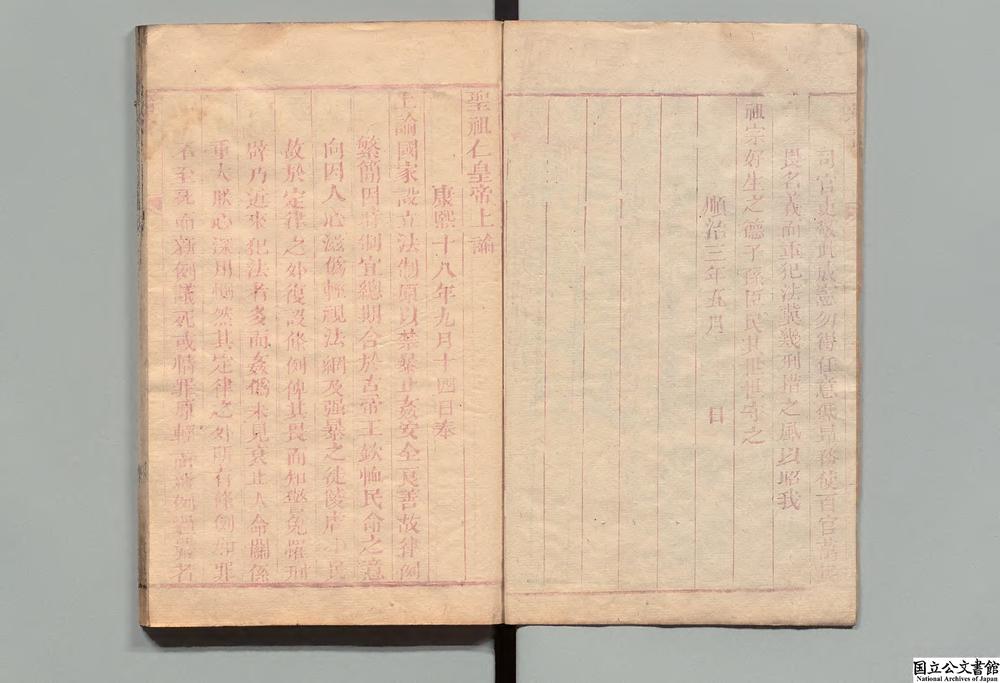 司官吏敬此成憲勿得任意低昂務使百官萬民
畏名義而重犯法冀幾刑措之風以昭我
祖宗好生之德子孫臣民其世世守之
順治三年五月 日
聖祖仁皇帝上諭
康熙十八年九月十四日奉
上諭國家設立法制原以禁暴止姦安全良善故律例
繁簡因時制宜總期合於古帝王欽恤民命之意
向因人心滋僞輕視法網及强暴之徒陵虐小民
故於定律之外復設條例俾其畏而知警免罹刑
辟乃近來犯法者多而姦僞未見衰止人命關係
重大朕心深用惻然其定律之外所有條例如罪
不至死而新例議死或情罪原輕而新例過嚴者
国立公文書館
National Archives of Japan